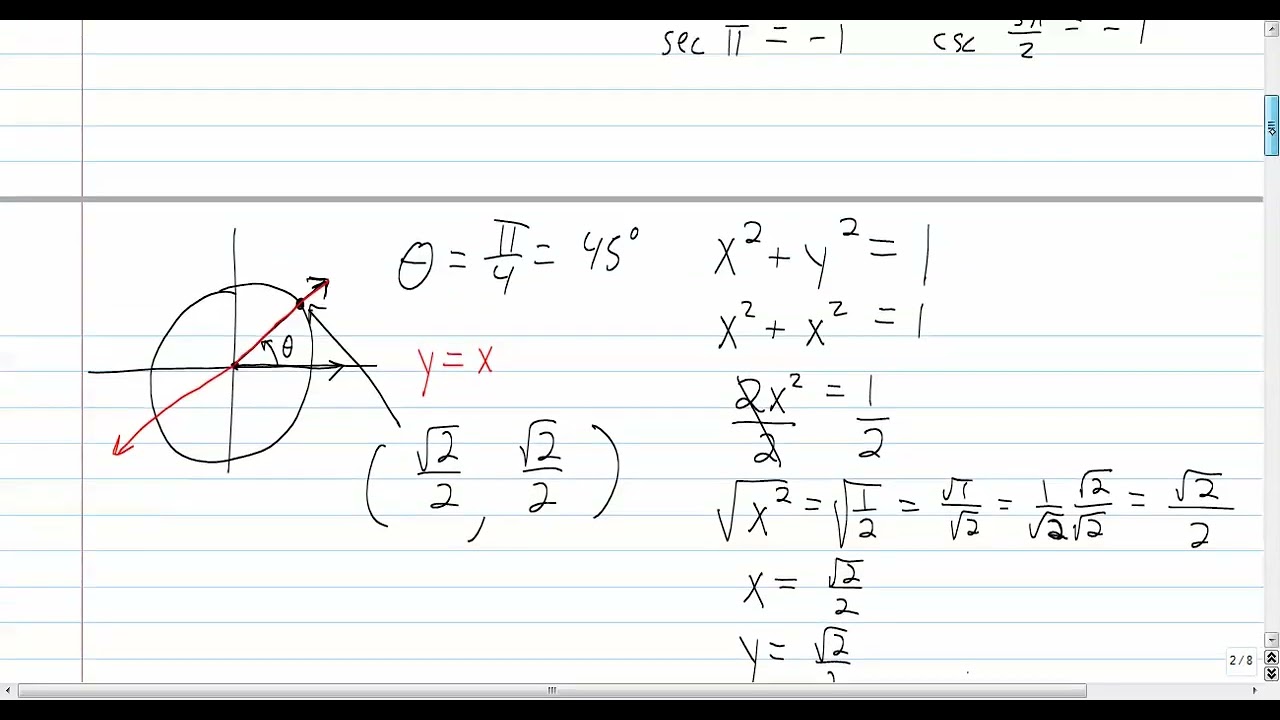 sec π = -1 csc 3π/2 = -1
θ = π/4 = 45°
x² + y² = 1
x² + x² = 1
θ
y = x
2x²/2 = 1/2
(√2/2, √2/2)
√x² = √1/2 = √1/√2 = 1/√2 √2/√2 = √2/2
x = √2/2
y = √2/2
2 / 8